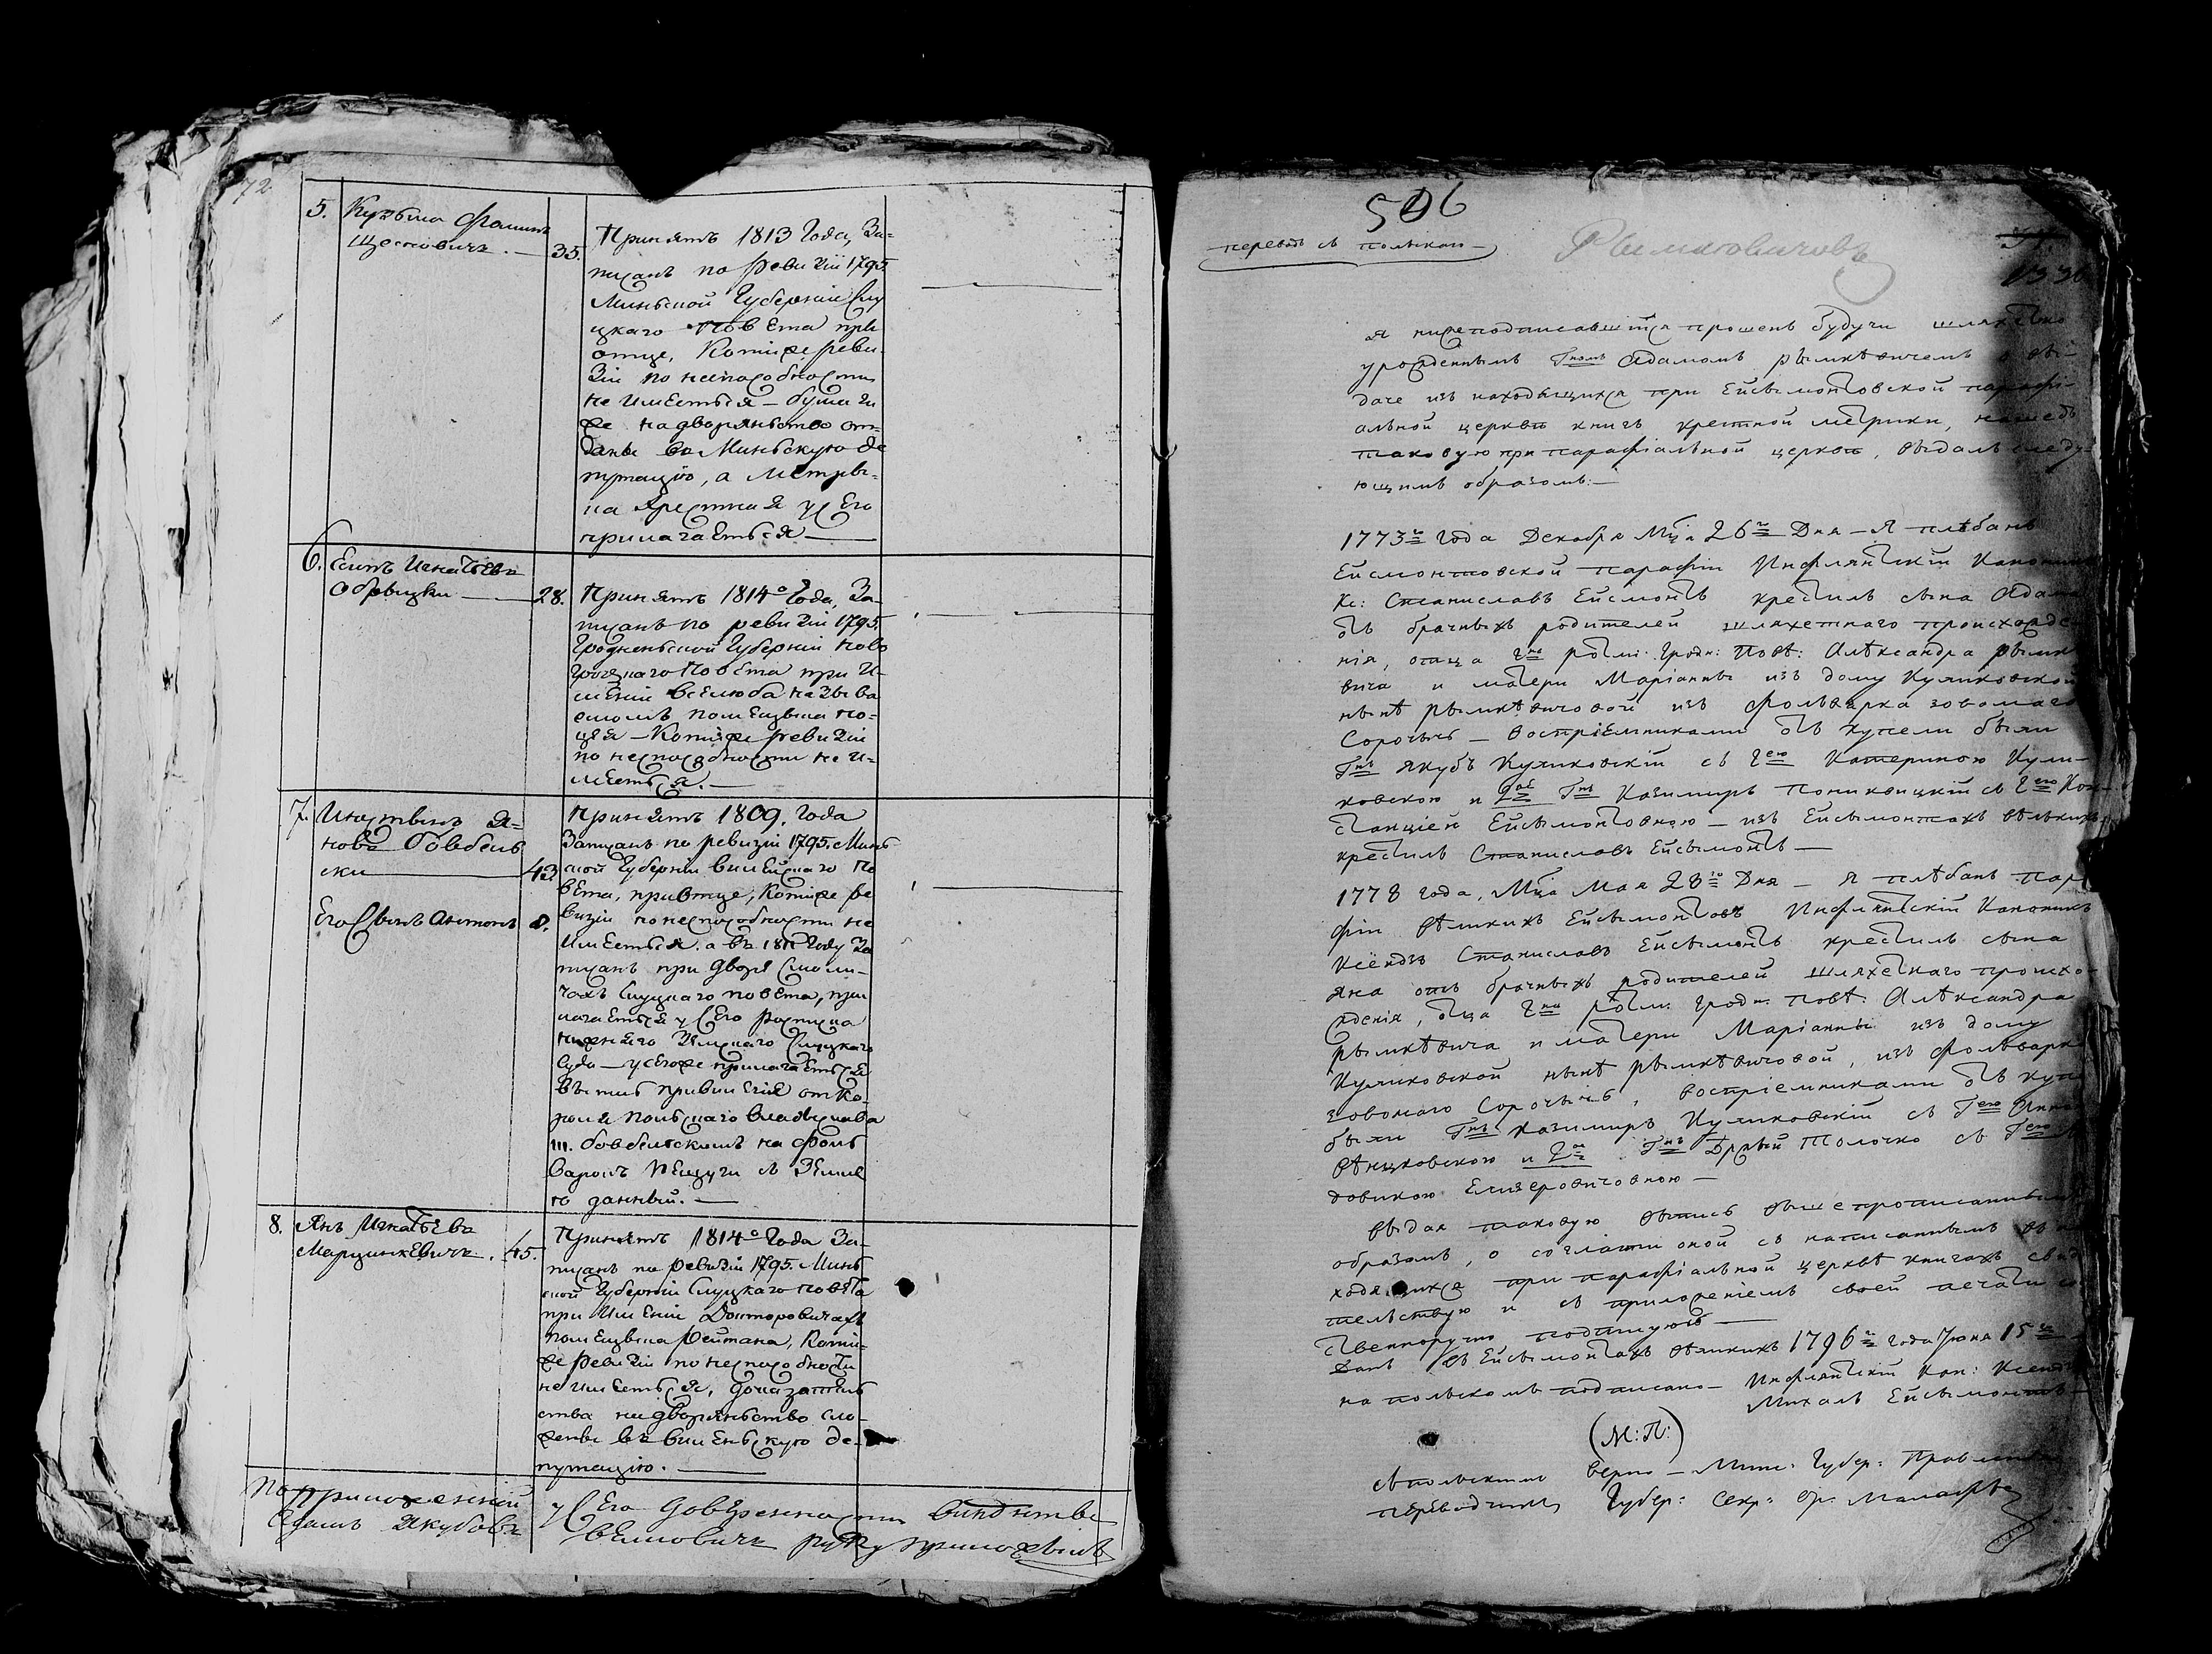 72.
5. Кузьма Фоминъ
Щесновичъ. — 35.
Принятъ 1813 Года, За-
писанъ по ревизіи 1795.
Миньской Губерніи Слу
цкаго Повѣта при
отце, Копіи же реви-
зіи по неспособности
не имѣетъся — бумаги
же на дворянъство от-
даны въ Минъскую де
путацію, а Метры-
ка Крестная у Сего
прилагаетъся —
6. Есипъ Игнатьевъ
Обрыцки — 28.
Принятъ 1814го Года, За-
писанъ по ревизіи 1795.
Гродненьской Губерніи Ново
Грудскаго Повѣта при И-
меніи Вселюба называ
емомъ помещыка
Копіи же ревизіи
по неспособности не и-
меетъся. —
7. Инъстынъ Я-
новъ
ски — 43.
Его Сынъ Антонъ 8.
Принятъ 1809. Года
Записанъ по ревизіи 1795. Минь
ской Губерніи Вилейскаго По
вета, при отце, Копіи же ре
визіи по неспособности не
имѣетъся. а въ 1811 Году За
писанъ при дворѣ Смоли-
чахъ Слуцкаго повета, при
лагаетъся у Сего росписка
нижняго Земскаго Слуцкаго
Суда — у сего же прилагаетъся
выпись привилегія от Ко-
роля польскаго Владыслава
III. на фоль
варокъ съ Землѣ
ю данный. —
8. Янъ Игнатьевъ
Марцинкевичъ. 45.
Принятъ 1814го Года За-
писанъ по ревизіи 1795. Минь
ской Губерніи Слуцкаго повѣта
при Именіи Докторовичахъ
помещыка Рейтана, Копіи
же ревизіи по неспособности
не имѣетъся, доказатель
ства на дворянъство сло-
жены въ Виленьскую де-
путацію. —
По приложенной у Сего доверенности
Адамъ Якубовъ руку приложилъ
506
переводъ съ польскаго
Рымкевичовъ
я нижеподписавшійся прошенъ будучи шляхетно
урожденнымъ Гномъ Адамомъ Рымкѣвичемъ о вы-
даче изъ находящихся при Ейсымонтовской парафі-
альной церкви книгъ крестной метрики, нашедъ
таковую при парафіальной церкви, выдалъ следу-
ющимъ образомъ: —
1773го Года Декабря Мца 26го Дня — Я плѣбанъ
Ейсмонтовской парафіи Инфлянтскій Каноникъ
Кс: Станиславъ Ейсмонтъ крестилъ сына Адама
отъ брачныхъ родителей шляхетнаго происхожде-
нія, отца Гна ротм: Гродн: Повѣ: Алѣксандра Рымкѣ
вича и матери Маріанны изъ дому Куликовской
нынѣ Рымкѣвичовой изъ фольварка зовомаго
Сорочичъ — воспріемниками отъ купели были
Гнъ Якубъ Куликовскій съ Гею Катериною Кули-
ковскою и 2ое Гнъ Казимиръ Пониквицкій съ Гею Кон-
станціею Ейсымонтовною — изъ Ейсымонтахъ вѣликихъ
крестилъ Станиславъ Ейсымонтъ —
1778 года, Мца Мая 28го Дня — Я плѣбанъ пара
фіи вѣликихъ Ейсымонтовъ Инфлянтскій Каноникъ
Ксёндзъ Станиславъ Ейсымонтъ крестилъ сына
Яна отъ брачныхъ родителей шляхетнаго происхо-
жденія, отца Гна ротм. Гродн. Повѣ: Алѣксандра
Рымкѣвича и матери Маріанны изъ дому
Куликовской нынѣ Рымкѣвичовой, изъ фольварка
зовомаго Сорочичъ, воспріемниками отъ купе
были Гнъ Казимиръ Куликовскій съ Гею Анною
Вѣнцковскою и 2ое Гнъ Толочко съ Гею
довикою —
Выдая таковую выпись выше прописаннымъ
образомъ, о согласіи оной съ написаннымъ въ на
ходящихся при парафіальной церквѣ книгахъ свидѣ
тельствую и съ приложеніемъ своей печати со
бственноручно подпишусь —
Данъ въ Ейсымонтахъ вѣликихъ 1796го Года Іюня 15го
на польскомъ подписано — Инфлянтскій Кан: Ксендзъ
Михалъ Ейсымонтъ
(М: П:)
съ польскимъ верно — Губер: Правленія
переводчикъ Губер: Секр: